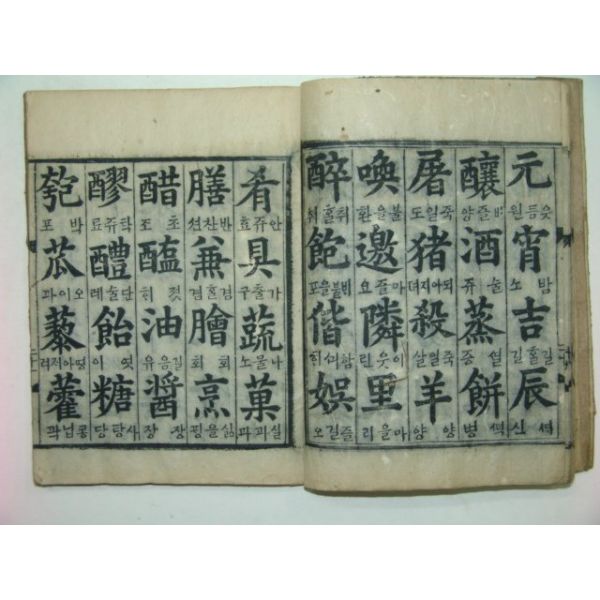 元 읏듬원 宵 밤소 吉 길홀길 辰 신
釀 비즐양 酒 술쥬 蒸 증 餠 떡병
屠 죽일도 猪 되야지뎌 殺 죽일살 羊 양양
喚 불을환 邀 마즐요 隣 이웃린 里 마을리
醉 취홀취 飽 비불을포 偕 娛 즐길오
肴 안쥬효 具 가출구 蔬 나물소 菓 실과과
膳 반찬션 兼 겸홀겸 膾 회회 烹 삶을핑
醋 초조 醢 젓히 油 길음유 醬 장장
醪 탁쥬료 醴 단술례 飴 엿이 糖 사탕당
匏 박포 苽 오이과 藜 藿 콩닙곽